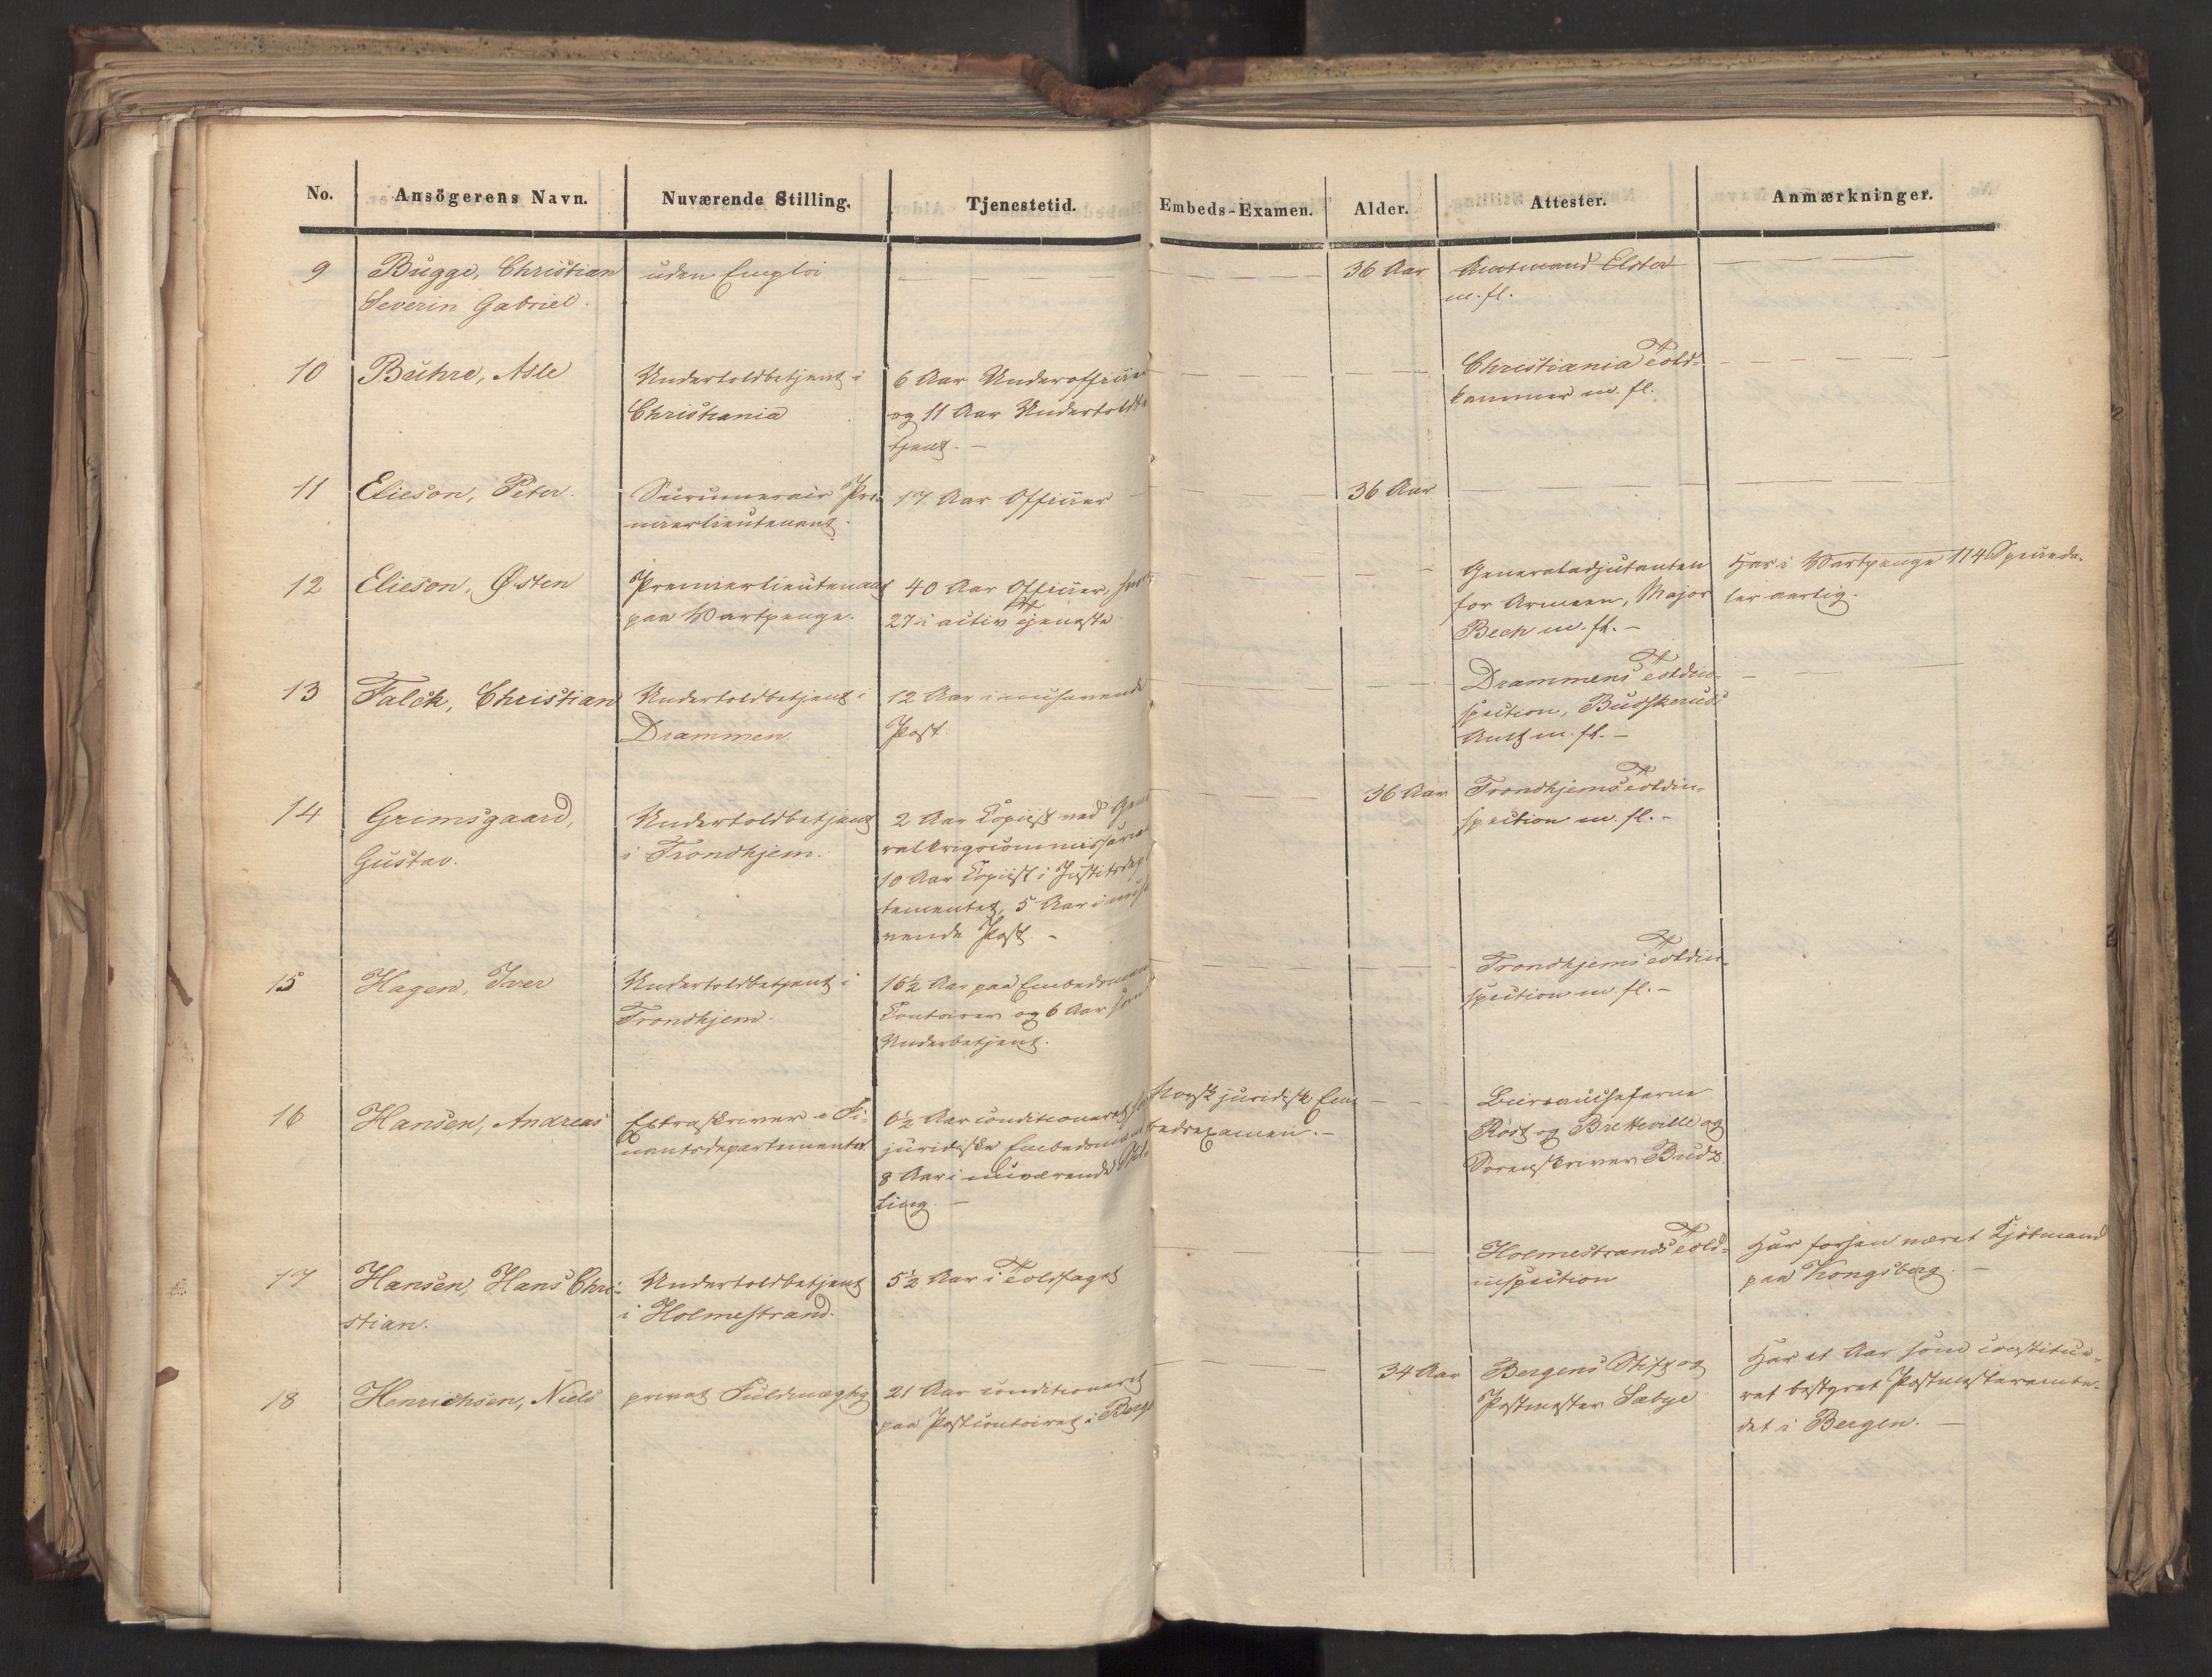 No.
Ansögerens Navn.
Nuværende Stilling.
Tjenestetid.
Embeds-Examen.
Alder.
Attester.
Anmærkninger.
9
Bugge, Christian
Severin Gabriel.
uden Emploi
36 Aar
Amtmand Elster
m. fl.
10
Buhre, Asle
Undertoldbetjent i
Christiania
6 Aar Underofficer
og 11 Aar Undertoldbe
tjent. –
Christiania Told-
kammer m. fl.
11
Elieson, Peter.
Surnumerair Pre-
mierlieutenant.
17 Aar Officier
36 Aar
12
Elieson, Østen
Premierlieutenant
paa Vartpenge.
40 Aar Officier,
27 i activ Tjeneste
Generaladjutanten
for Armeen, Major
Bech m. fl. –
Har i Vartpenge 114 Specieda-
ler aarlig.
13
Falck, Christian
Undertoldbetjent i
Drammen.
12 Aar i nuhavende
Post
Drammens Toldin-
spection, Budskeruds
Amt m. fl. –
14
Grimsgaard,
Gustav.
Undertoldbetjent
i Trondhjem.
2 Aar Copiist ved Gene
ralkrigscommissaria
10 Aar Copiist i Justitsdepar
tementet, 5 Aar i nuha
vende Post. –
36 Aar
Trondhjems Toldin-
spection m. fl. –
15
Hagen, Iver
Undertoldbetjent i
Trondhjem.
16½ Aar paa Embedsmænds
Contoirer og 6 Aar som
Underbetjent.
Trondhjems Toldin-
spection m. fl. –
16
Hansen, Andreas
Extraskriver i Fi-
nantsdepartementet
6½ Aar conditioneret hos
juridiske Embedsmænd
8 Aar i nuværende Stil-
ling. –
Norsk juridisk Em-
bedsexamen. –
Bureaucheferne
Röst og Bretteville og
Sorenskriver Budz.
17
Hansen, Hans Chri-
stian.
Undertoldbetjent
i Holmestrand.
5½ Aar i Toldfaget
Holmestrands Told-
inspection
Har forhen været Kjöbmand
paa Kongsberg. –
18
Henrichsen, Niels
privat Fuldmægtig
21 Aar conditioneret
paa Postcontoiret i Berg
34 Aar
Bergens Stift og
Postmester Sabye
Har et Aar som constitue-
ret bestyret Postmesterembe-
det i Bergen. –